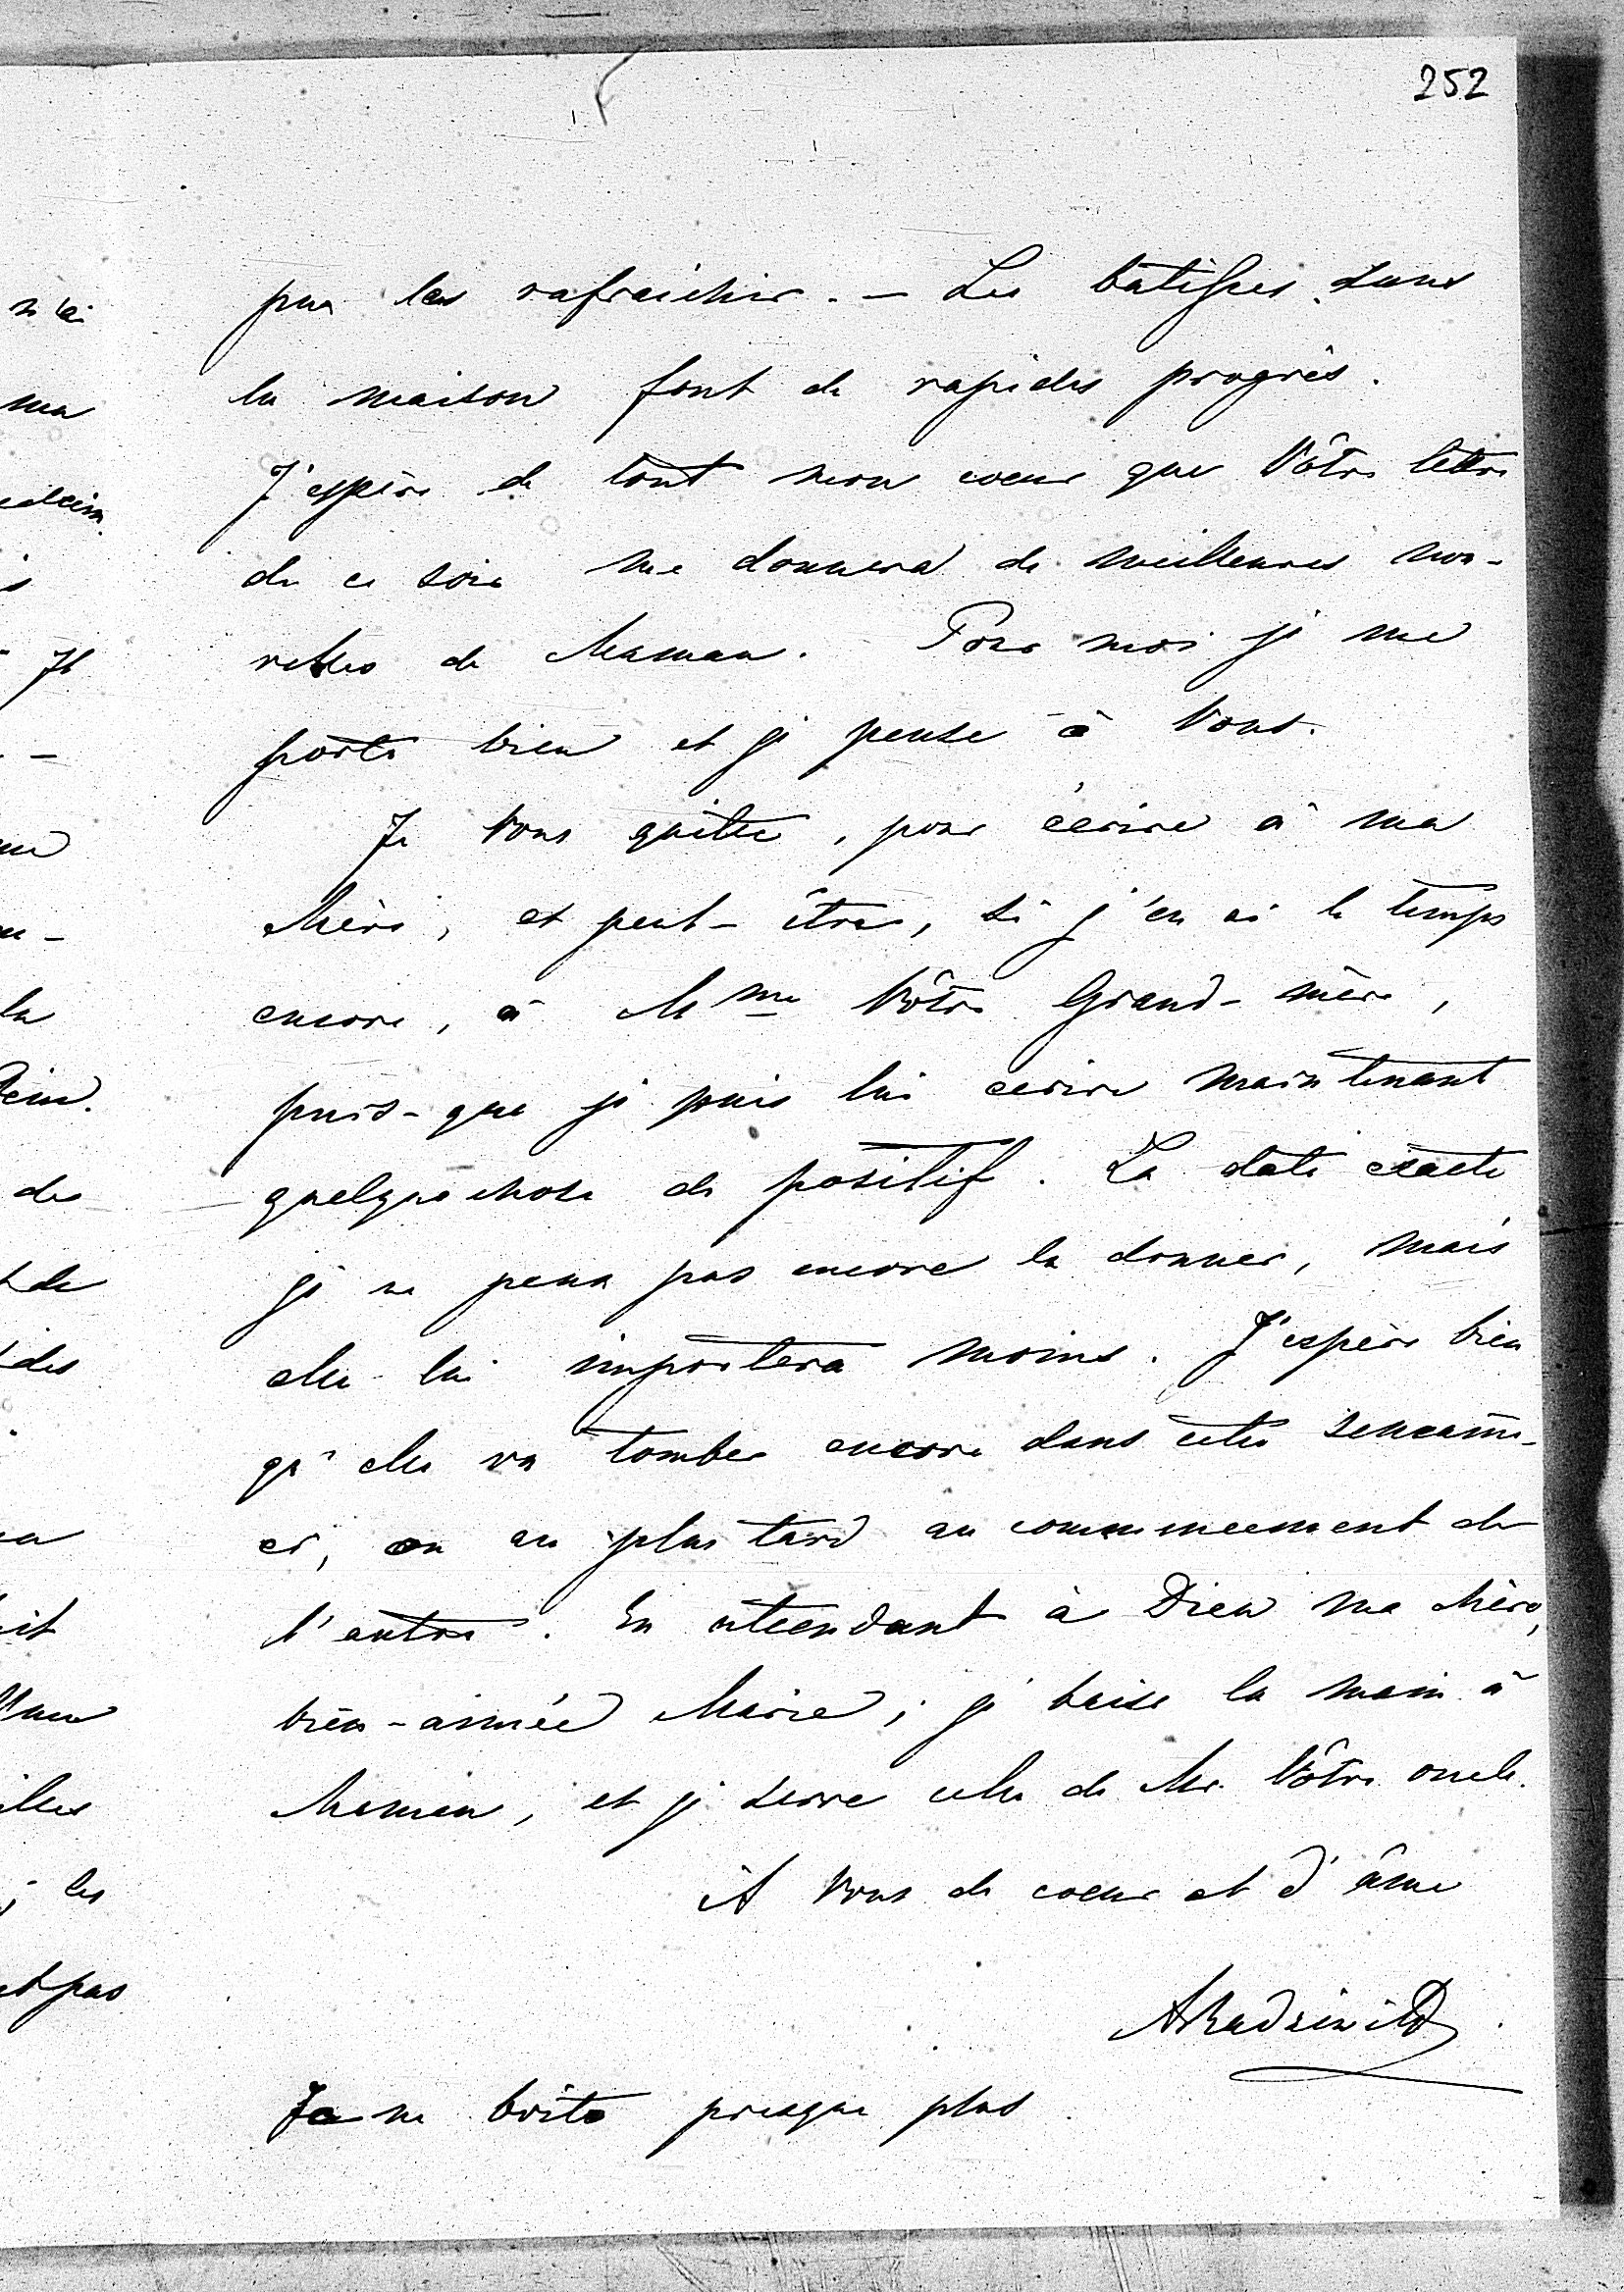 252
pour les rafraichir. — Les bâtisses dans
la maison font de rapides progrès.
J'espère de tout mon coeur que Vôtre lettre
de ce soir me donnera de meilleures nou-
velles de Maman. Pour moi je me
porte bien et je pense à Vous.
Je Vous quitte, pour écrire à ma
Mère, et peut-être, si j'en ai le temps
encore, à Mme Vôtre Grand-mère,
puis-que je puis lui ecrire maintenant
quelque chose de positif. La date exacte
je ne peux pas encore la donner, mais
elle lui importera moins. J'espère bien
qu'elle va tomber encore dans cette semaine-
ci, ou au plus tard au commencement de
l'autre. En attendant à Dieu ma chère,
bien-aimée Marie; je baise la main à
Maman, et je serre celle de Mr. Vôtre oncle.
A Vous de coeur et d'âme
ARadziwill
Je ne boite presque plus.
n'ai
ma
is
Il
la
des
de
des
les
pas